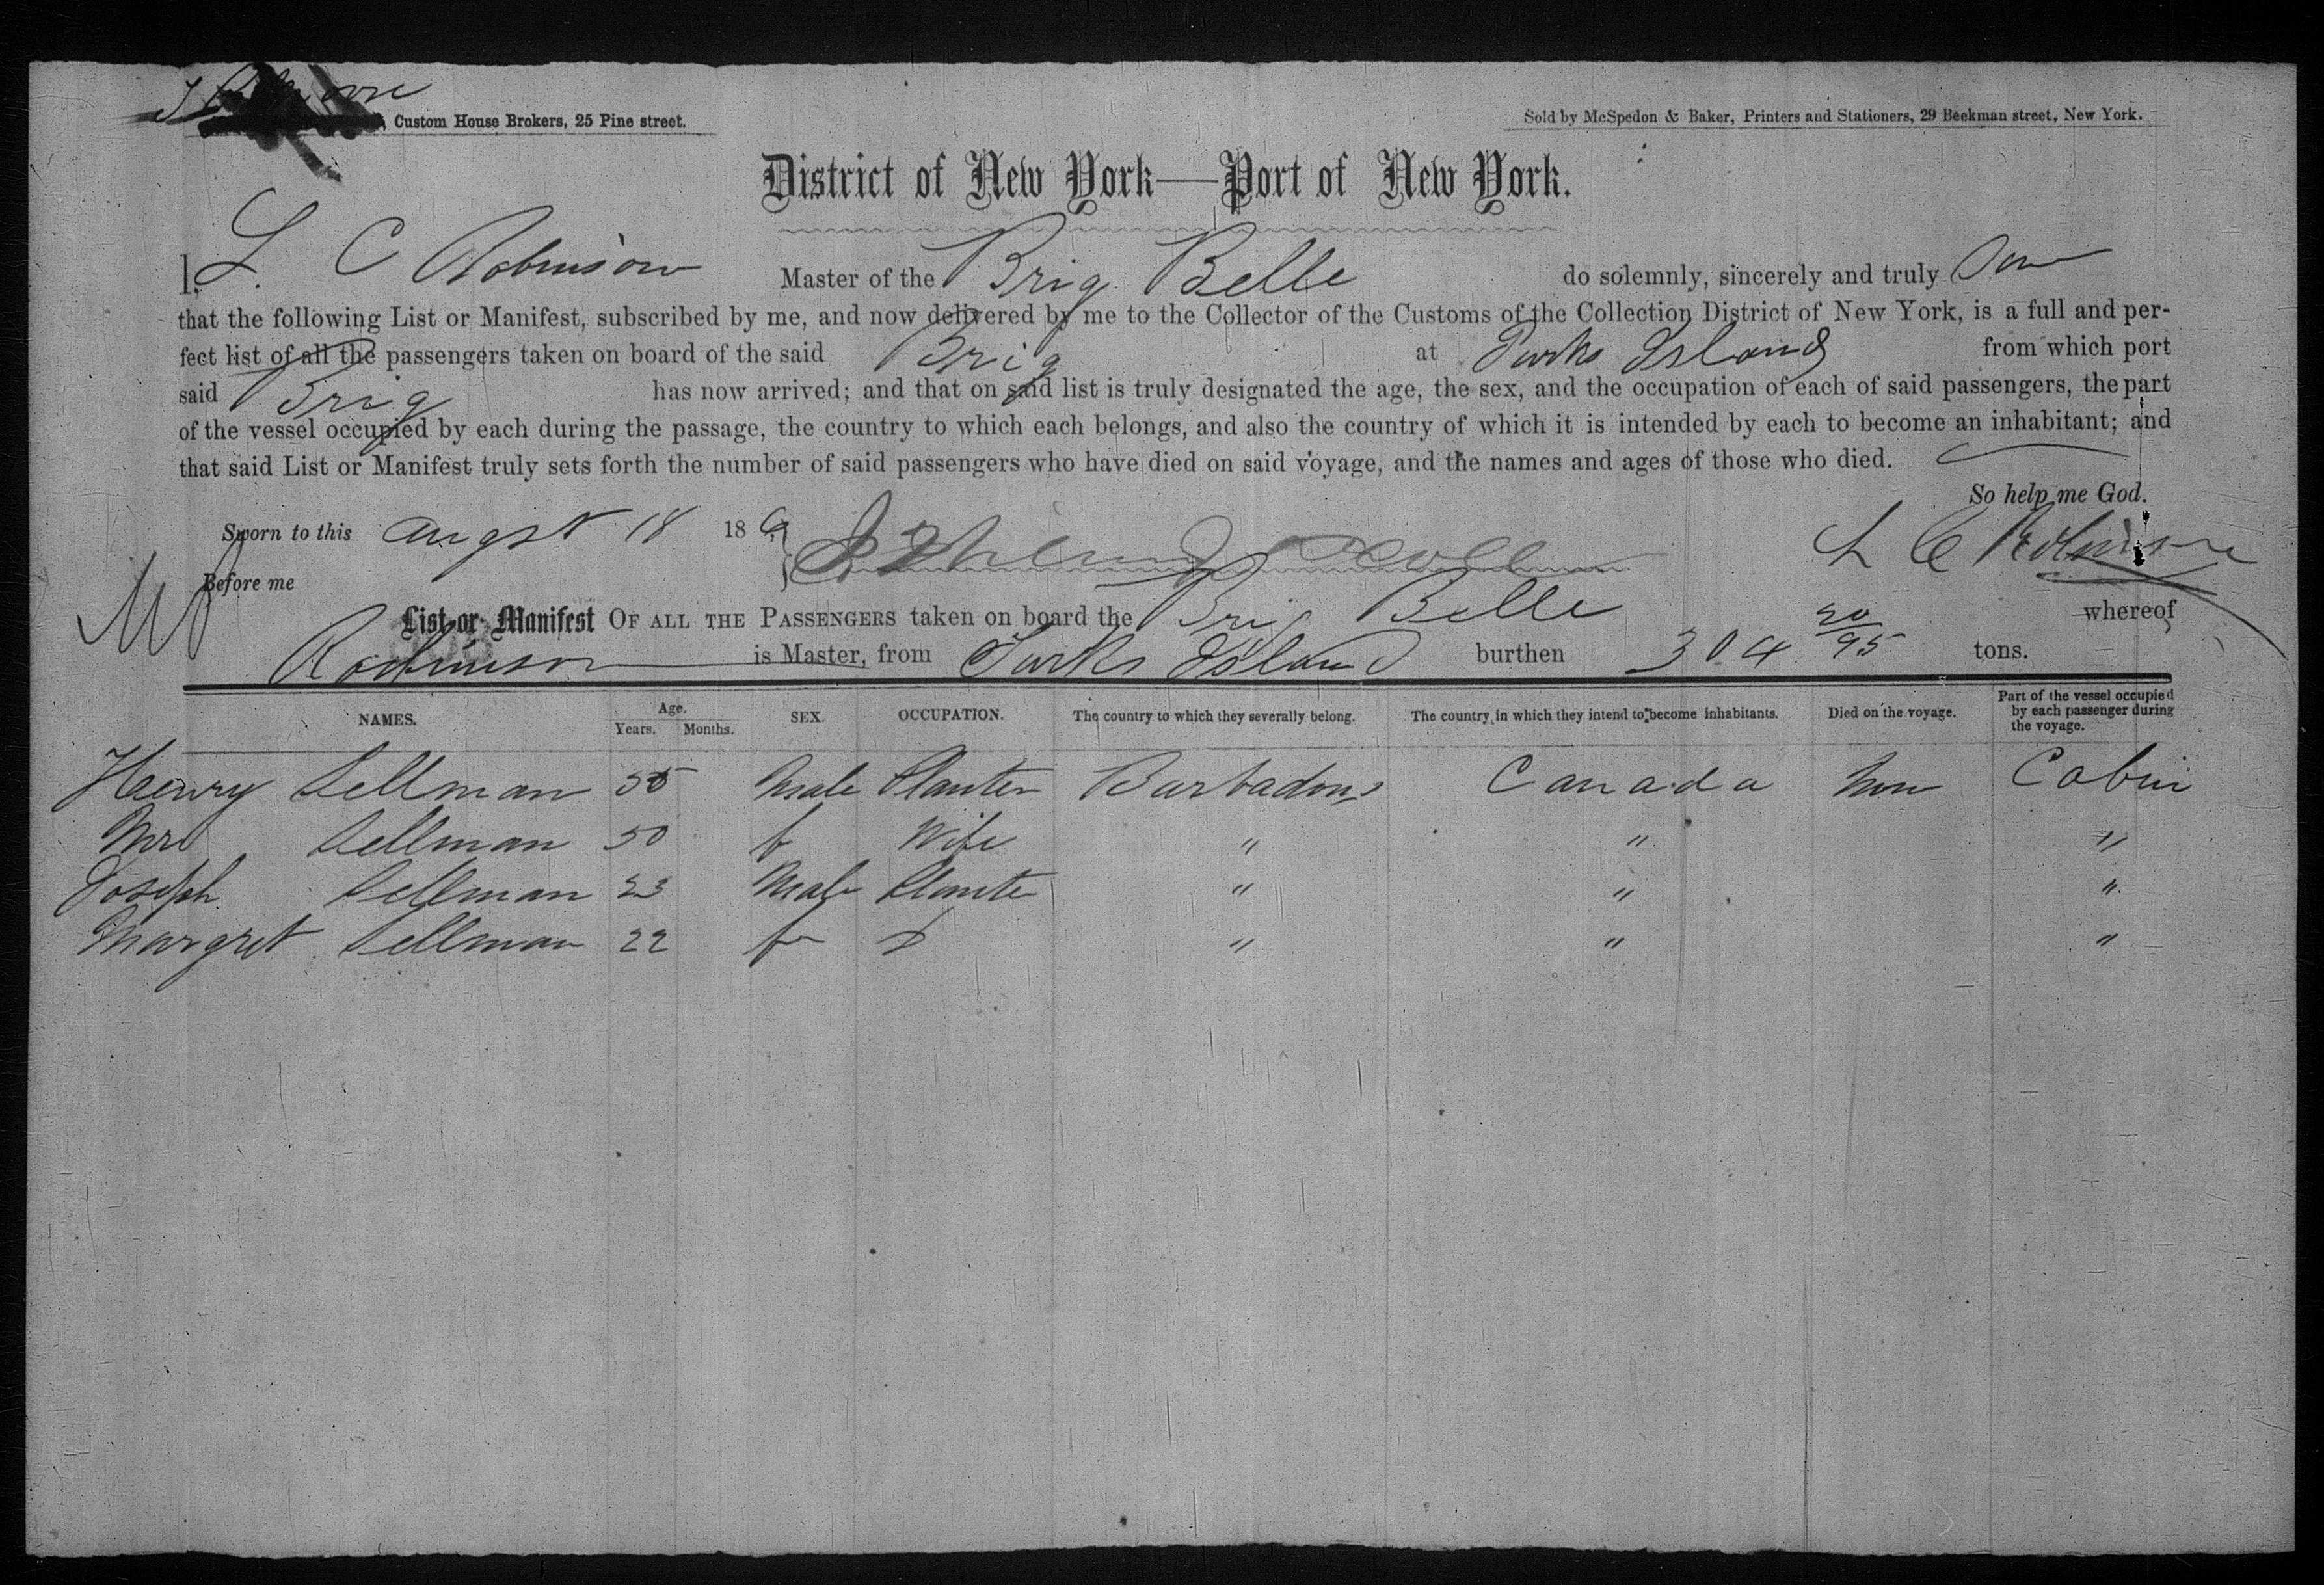 , Custom House Brokers, 25 Pine street.
Sold by McSpedon & Baker, Printers and Stationers, 29 Beekman street, New York.
District of New York—Port of New York.
I, L. C Robinson Master of the Brig Belle do solemnly, sincerely and truly
that the following List or Manifest, subscribed by me, and now delivered by me to the Collector of the Customs of the Collection District of New York, is a full and per-
fect list of all the passengers taken on board of the said Brig at Turks Island from which port
said Brig has now arrived; and that on said list is truly designated the age, the sex, and the occupation of each of said passengers, the part
of the vessel occupied by each during the passage, the country to which each belongs, and also the country of which it is intended by each to become an inhabitant; and
that said List or Manifest truly sets forth the number of said passengers who have died on said voyage, and the names and ages of those who died.
So help me God.
Sworn to this Augst 18 186
L C Robinson
Before me
List or Manifest OF ALL THE PASSENGERS taken on board the Brig Belle whereof
Robinson is Master, from Turks Island burthen 304 20/95 tons.
NAMES. Age. Years. Months. SEX. OCCUPATION. The country to which they severally belong. The country in which they intend to become inhabitants. Died on the voyage. Part of the vessel occupied by each passenger during the voyage.
Henry Sellman 55 Male Planter Barbadous Canada non Cabin
Mrs Sellman 50 f Wife " " "
Joseph Sellman 23 Male Plante " " "
Margret Sellman 22 f " " "